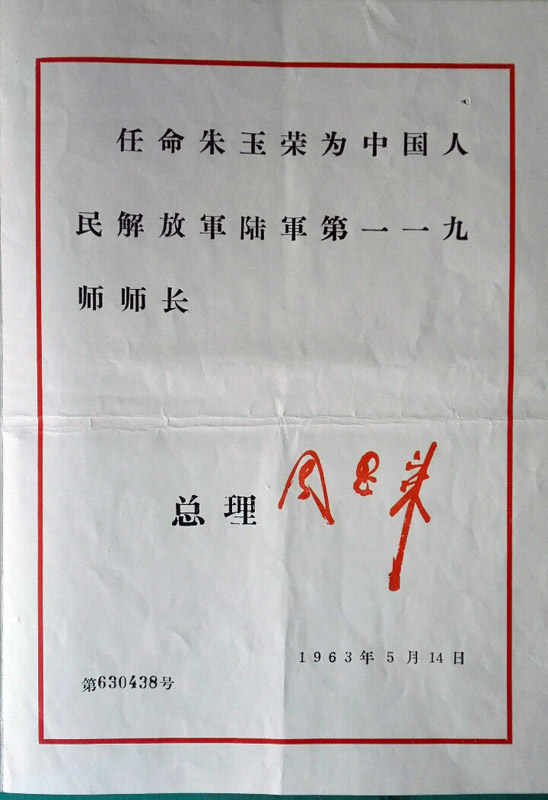 任命朱玉荣为中国人
民解放軍陆軍第一一九
师师长
总理 周恩来
1963年5月14日
第630438号